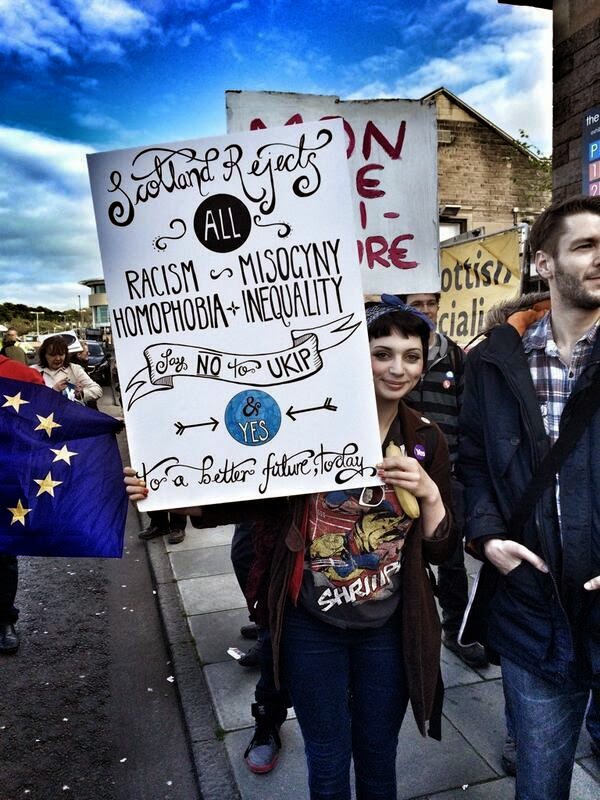 Scotland Rejects
ALL
RACISM ~ MISOGYNY
HOMOPHOBIA + INEQUALITY
Say NO to UKIP
& YES
for a better future, today
MON
E
I-
RE
ottish
ciali
the
P
1
2
Yes
SHRIMPS